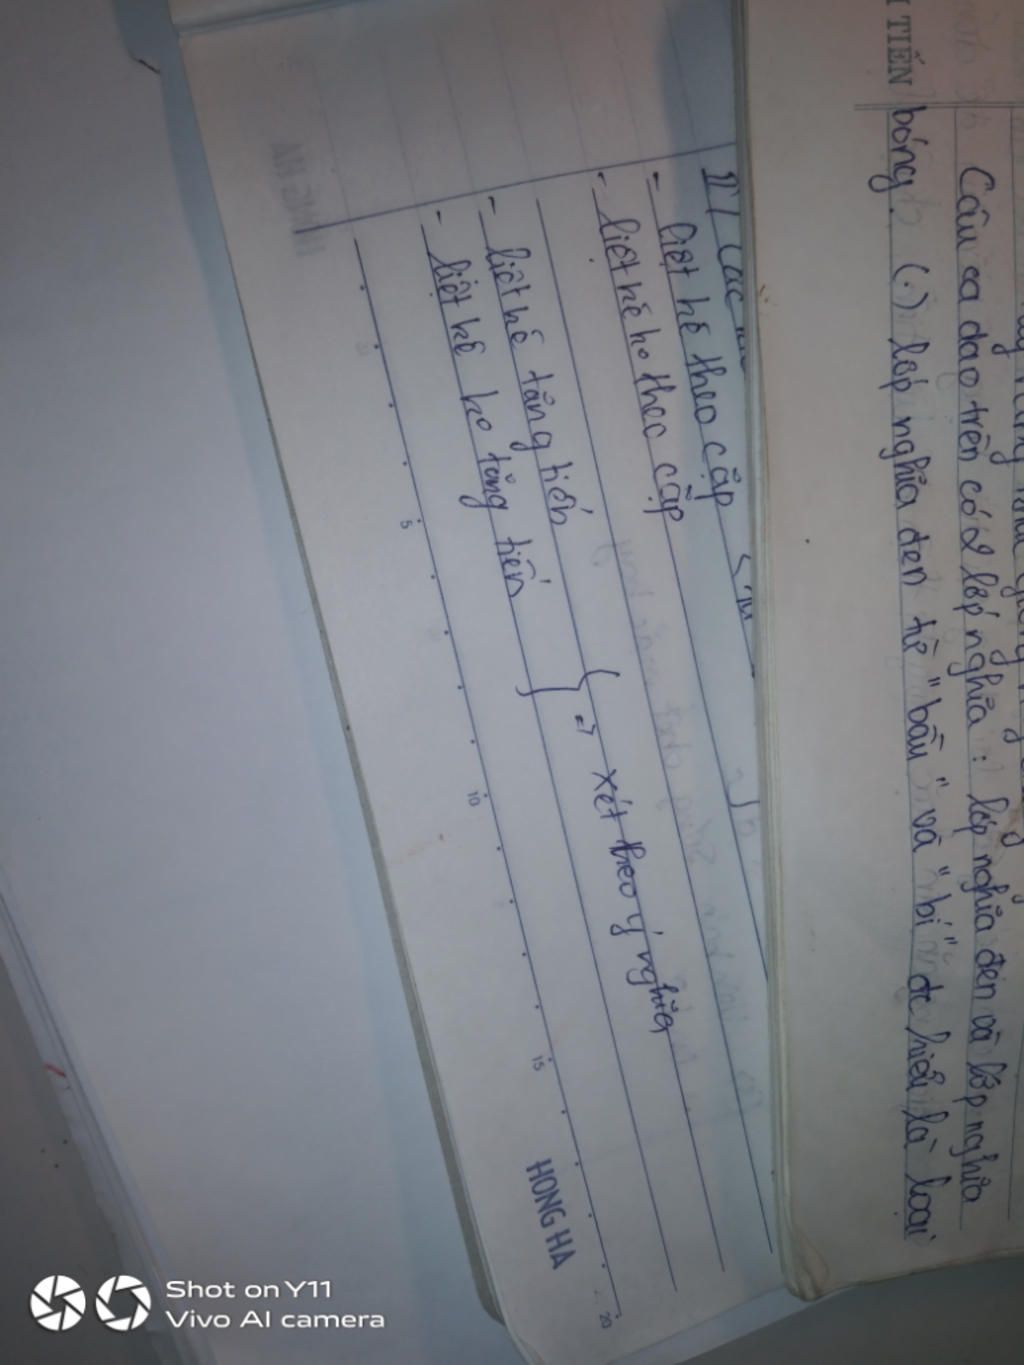 TIẾN
Câu ca dao trên có 2 lớp nghĩa: lớp nghĩa đen và lớp nghĩa
bóng. (.) lớp nghĩa đen từ "bầu" và "bí" để hiểu là loại
II/ Các
- liệt kê theo cặp
- liệt kê ko theo cặp
- liệt kê tăng tiến
- liệt kê ko tăng tiến
=> xét theo ý nghĩa
5
10
15
20
HONG HA
Shot on Y11
Vivo AI camera